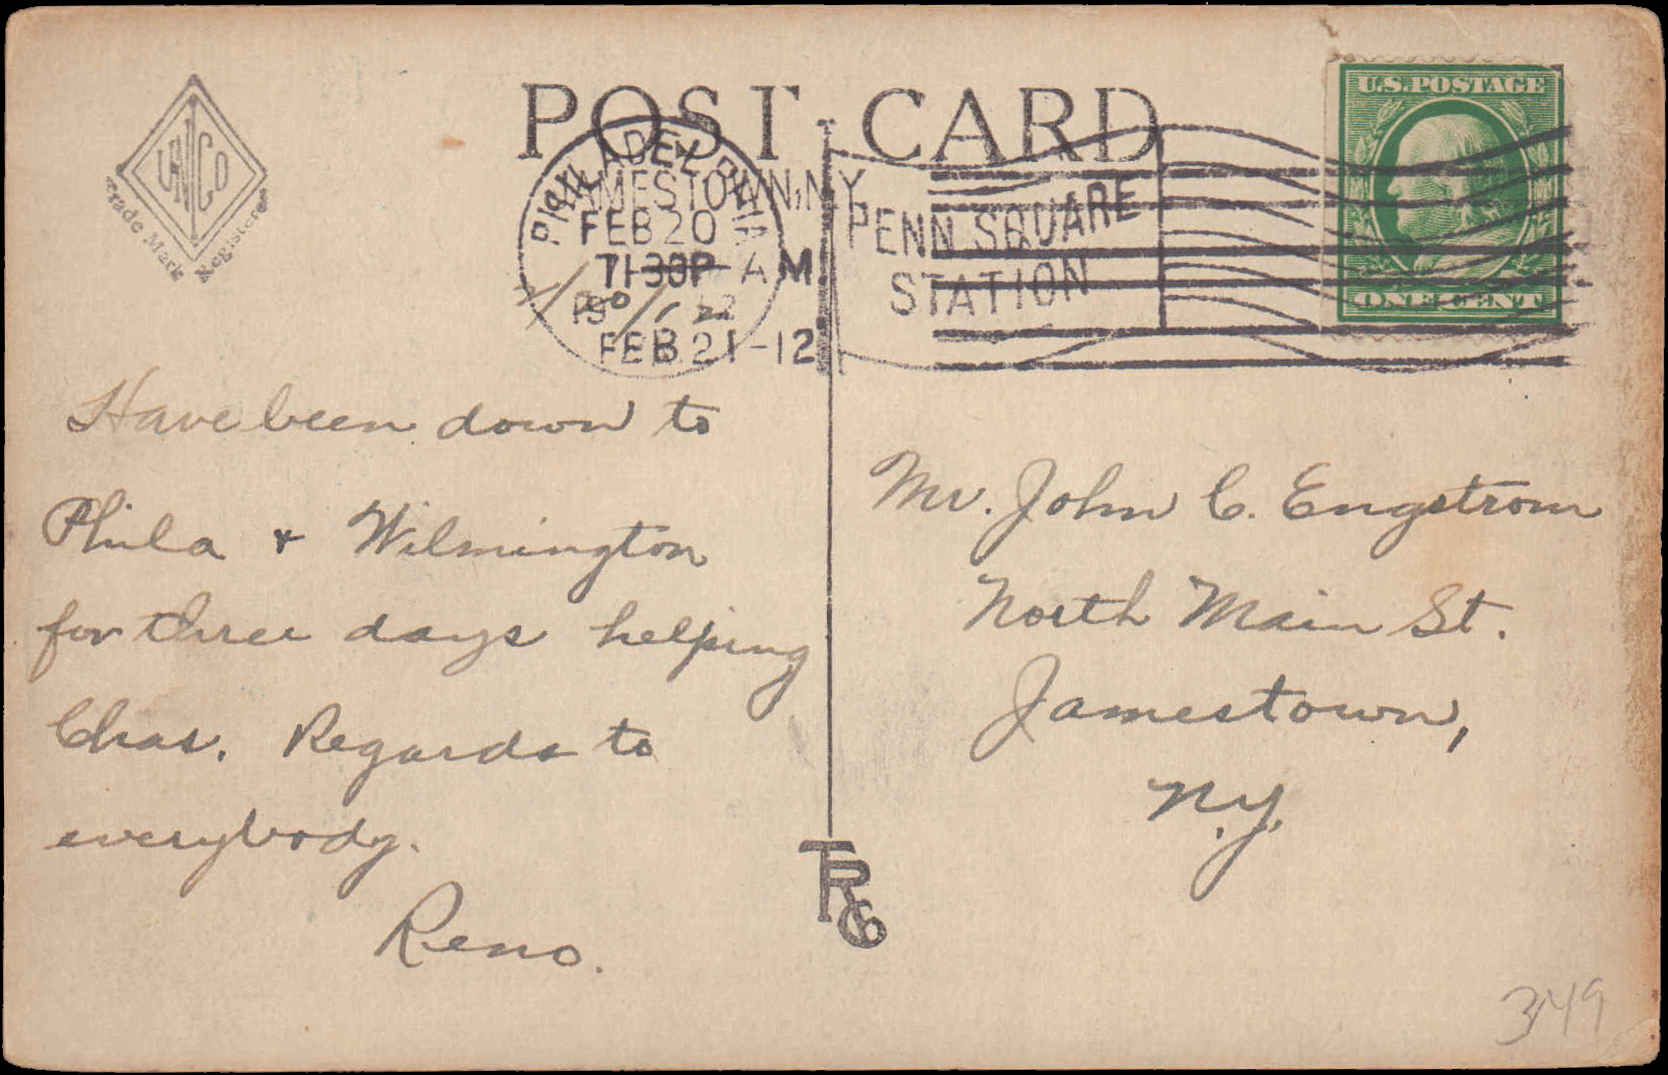 POST CARD
UNICO
Trade Mark Registered
PHILADELPHIA
JAMESTOWN, N.Y.
FEB 20
730P AM
FEB 21-12
PENN SQUARE
STATION
U.S. POSTAGE
ONE CENT
Have been down to
Phila + Wilmington
for three days helping
Chas. Regards to
everybody.
Reno.
Mr. John C. Engstrom
North Main St.
Jamestown,
N.Y.
TRCo
349